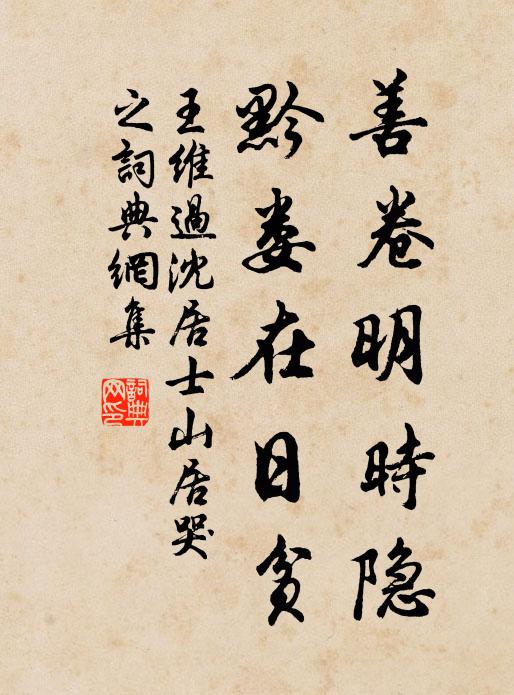 善卷明時隐
黔娄在日貧
王维過沈居士山居哭
之詞典網集
詞典
网印